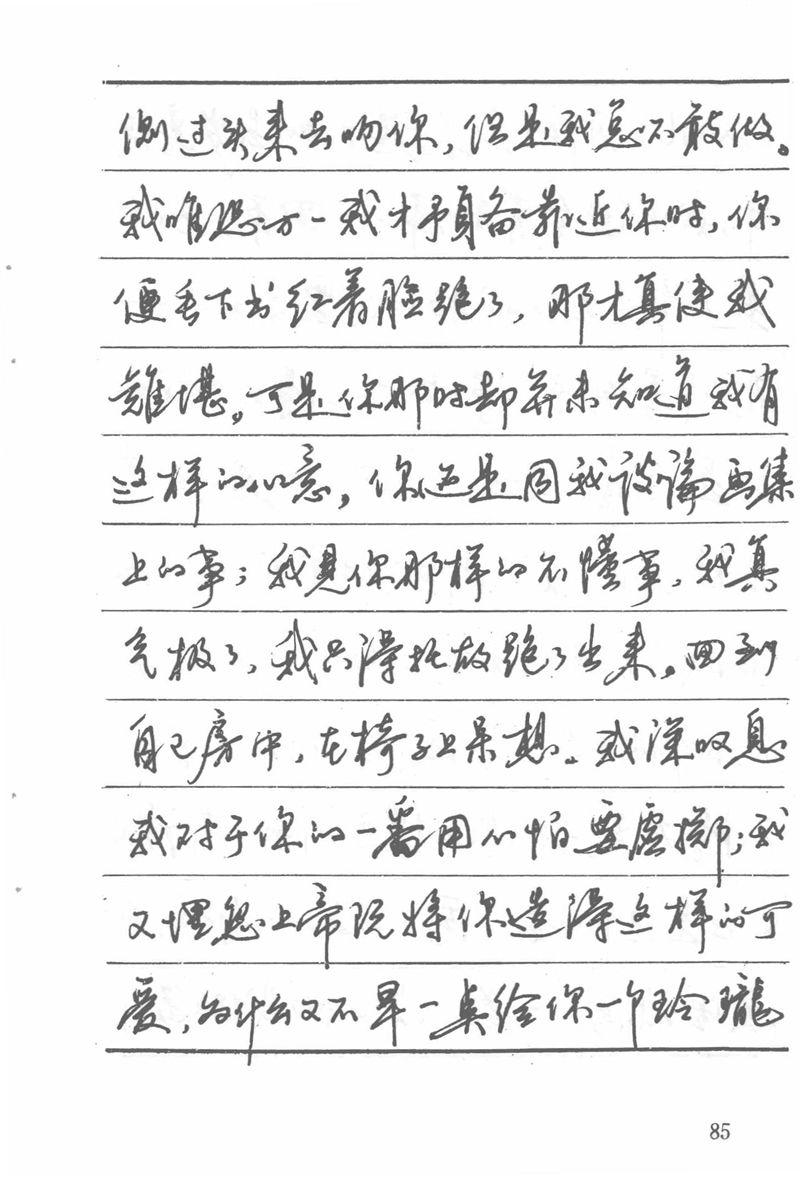 侧过头来去吻你，但是我总不敢做。
我唯恐万一我才預备靠近你时，你
便丢下书红着脸跑了，那才真使我
難堪。可是你那时却并未知道我有
这样的心意，你还是同我谈論画集
上的事；我見你那样的不懂事，我真
气极了，我只得托故跑了出来。回到
自己房中，在椅子上呆想。我深叹息
我对于你的一番用心怕要虚掷；我
又埋怨上帝既将你造得这样的可
爱，为什么又不早一点给你一个玲瓏
85